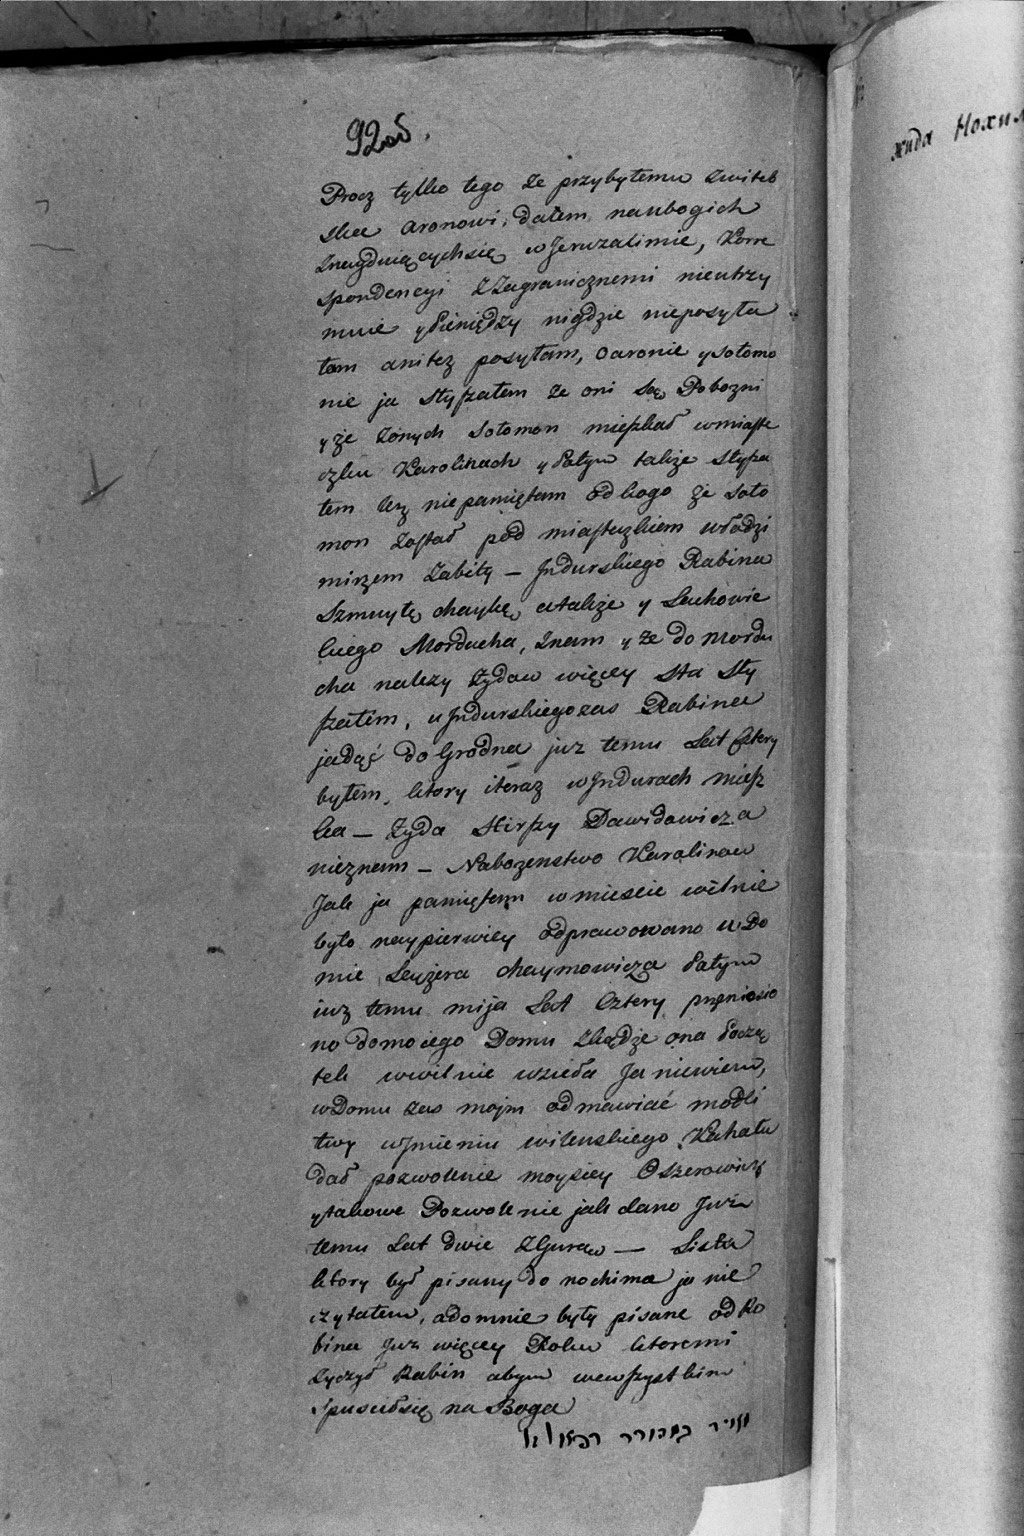 92об.
Procz tylko tego że przybyłemu zwiteb
ska Aronowi, dałem naubogich
Znayduiącychsię w Jeruzalimie, Korre
spondencyi zZagranicznemi nieutrzy
muie y Pieniędzy nigdzie nieposyła
łam anitez posyłam, oaronie y sołomo
nie ja słyszałem że oni są Pobozni
y że zonych sołomon mieszkał wmiaste
czku Karolinach y Potym takze słysza
łem lecz niepamiętam odkogo że soło
mon został pod miasteczkiem włodzi
mirzem zabity — Jndurskiego Rabina
Szmuyłę chaykę, atakze y Lachowic
kiego Morducha, znam y że do Mordu
cha nalezy Zydow więcey sta Sły
szałem, u Jndurskiegozas Rabina
jadąc do Grodna juz temu Lat Cztery
byłem, ktory iteraz w Jndurach miesz
ka — Zyda Hirszy Dawidowicza
nieznam — Nabozenstwo Karalinow
Jak ja pamiętam wmiescie wilnie
było naypierwiey odprawowano w Do
mie Leyzera chaymowicza Patym
iuz temu mija Lat Cztery przeniesio
no domoiego Domu zkądże ona Począ
tek wwilnie wzieła Ja niewiem,
wDomu zas mojm odmawiać modli
twy wJmieniu wilenskiego Kahału
dał pozwolenie moysiey Oszerowicz
ytakowe Pozwolenie jak dano Już
temu Lat dwie zGuraw — Lista
ktory był pisany do nochima ja nie
czytałem, adomnie były pisane od Ra
bina Juz więcey Roku ktoremi
zyczył Rabin abym wewszystkim
spusciłsię na Boga
מאיר במהורר רפאל ז"ל
жида Нохим